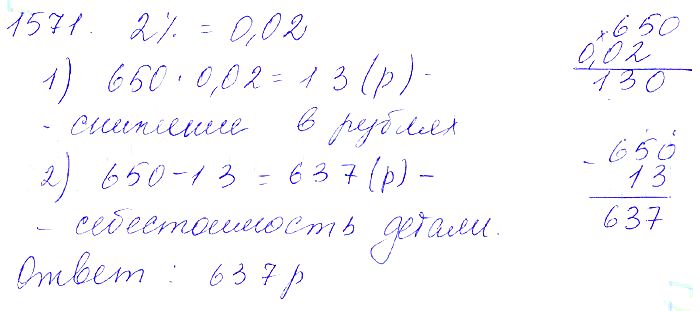 1571. 2% = 0,02
1) 650 · 0,02 = 13 (р) -
- снижение в рублях
2) 650 - 13 = 637 (р) -
- себестоимость детали.
Ответ: 637 р
× 650
0,02
130
- 650
13
637